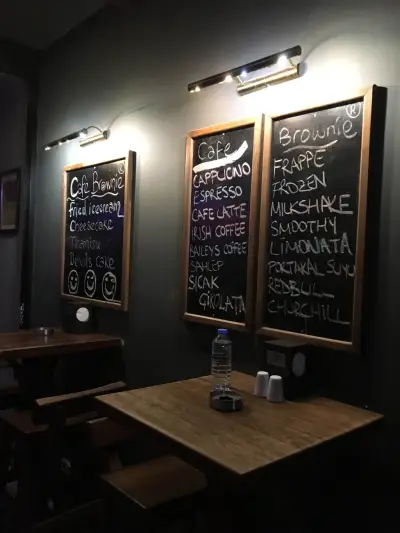 Cafe Brownie®
Fried icecream
Cheesecake
Tiramisu
Devils cake
Cafe
CAPPUCINO
ESPRESSO
CAFE LATTE
IRISH COFFEE
BAILEYS COFFEE
SAHLEP
SICAK
ÇİKOLATA
Brownie®
FRAPPE
FROZEN
MILKSHAKE
SMOOTHY
LIMONATA
PORTAKAL SUYU
REDBULL
CHURCHILL